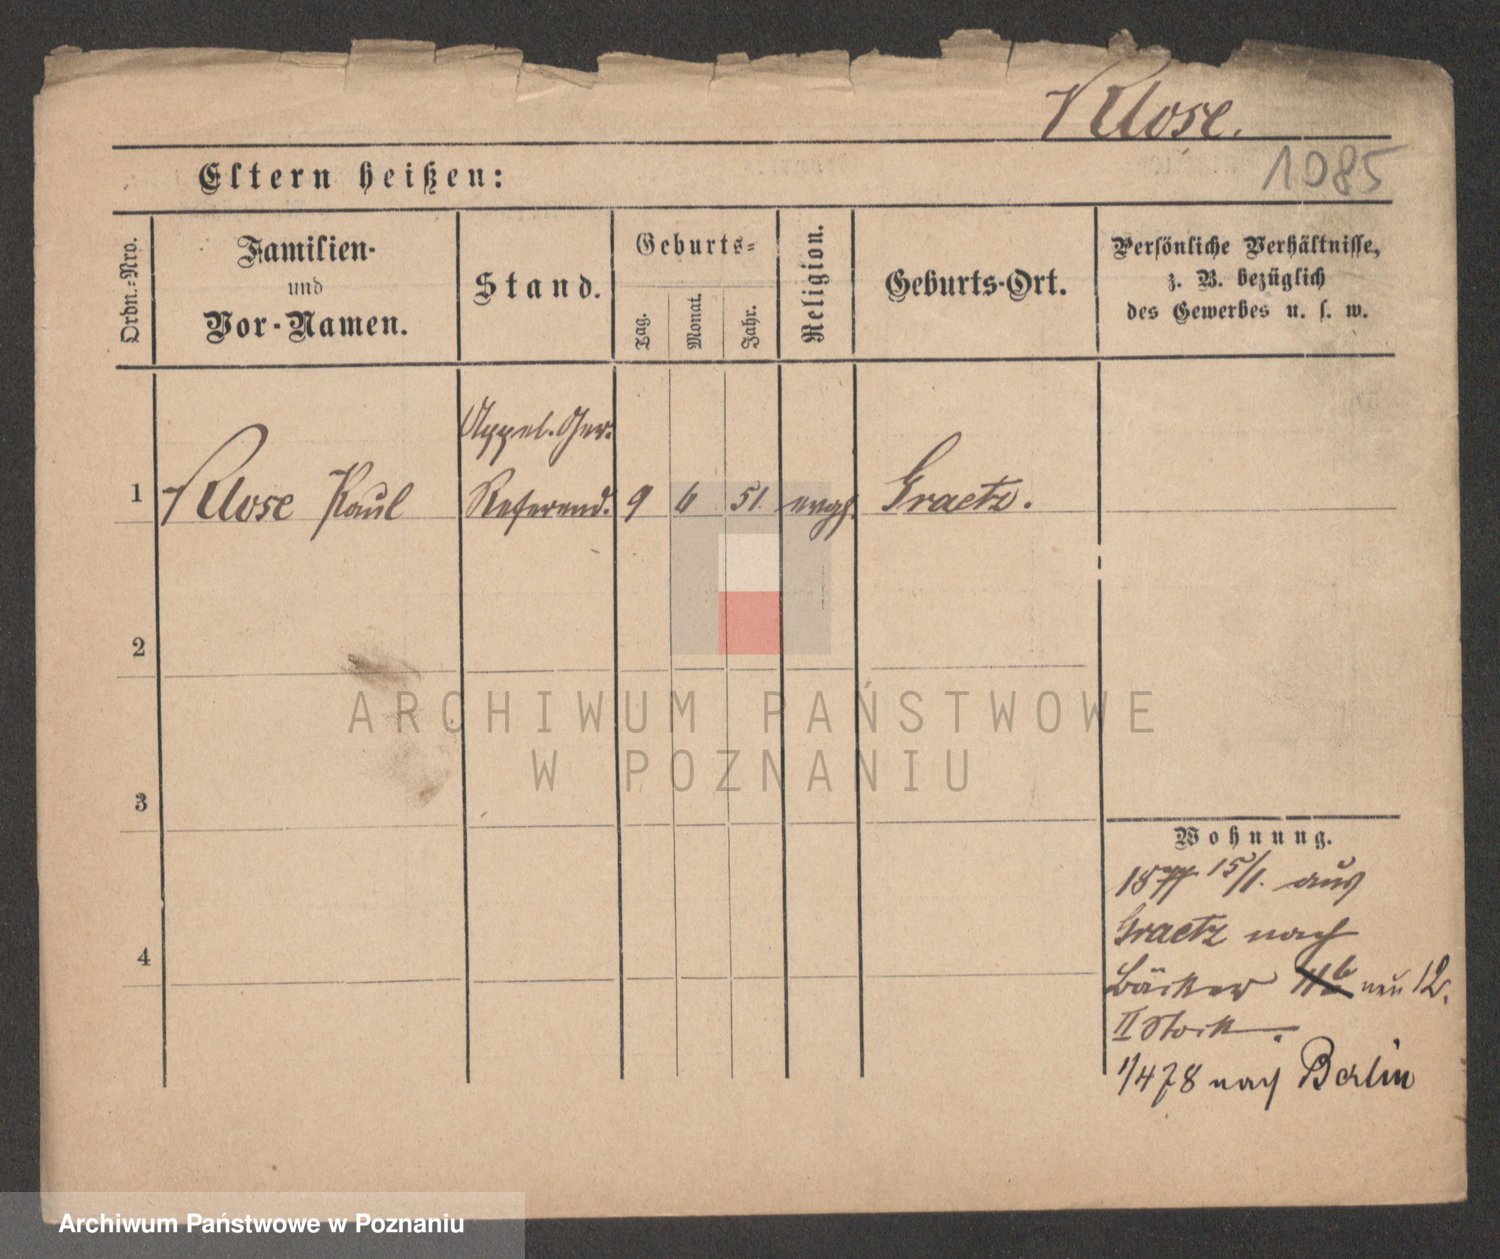 Klose.
1085
Eltern heißen:
Ordn.-Nro.
Familien-
und
Vor-Namen.
Stand.
Geburts-
Tag.
Monat.
Jahr.
Religion.
Geburts-Ort.
Persönliche Verhältnisse,
z. B. bezüglich
des Gewerbes u. s. w.
Appel. Ger.
1 Klose Paul Referend. 9 6 51. evgl. Graetz.
2
3
4
Wohnung.
1877 15/1. aus
Graetz nach
Bäcker neu 12.
II Stock.
1/4 78 nach Berlin
ARCHIWUM PAŃSTWOWE
W POZNANIU
Archiwum Państwowe w Poznaniu